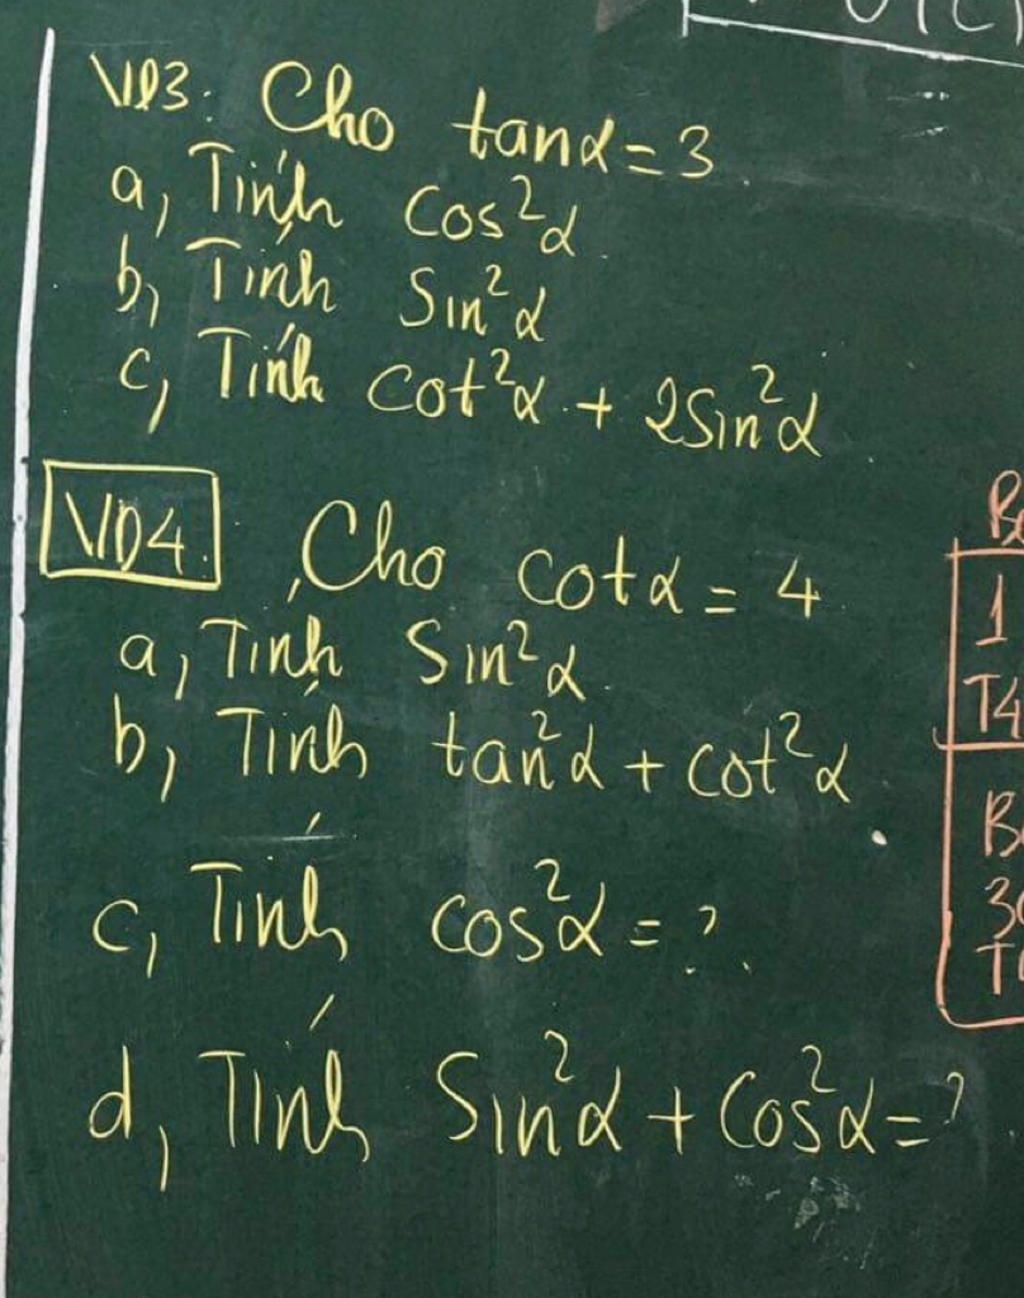 VD3: Cho tanα = 3
a, Tính cos²α
b, Tính Sin²α
c, Tính cot²α + 2Sin²α
VD4. Cho cotα = 4
a, Tính Sin²α
b, Tính tan²α + cot²α
c, Tính cos²α = ?
d, Tính Sin²α + Cos²α = ?
1
T4